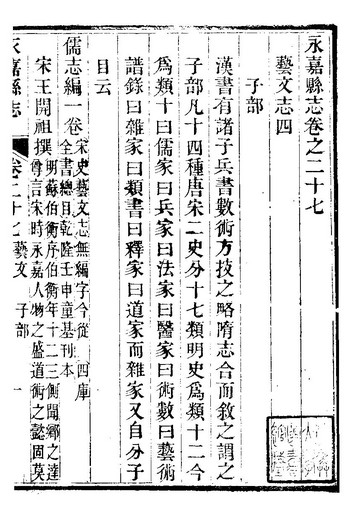 永嘉縣志卷之二十七
藝文志四
子部
漢書有諸子兵書數術方技之略隋志合而敘之謂之
子部凡十四種唐宋二史分十七類明史爲類十二今
爲類十曰儒家曰兵家曰法家曰醫家曰術數曰藝術
譜錄曰雜家曰類書曰釋家曰道家而雜家又自分子
目云
儒志編一卷
宋史藝文志無編字今從四庫
全書總目乾隆壬申童基刊本
宋王開祖撰
明蘇伯衡序伯衡年十二三側聞鄉之達
尊言宋時永嘉人物之盛道術之懿固莫
永嘉縣志
卷二十七 藝文 子部 一